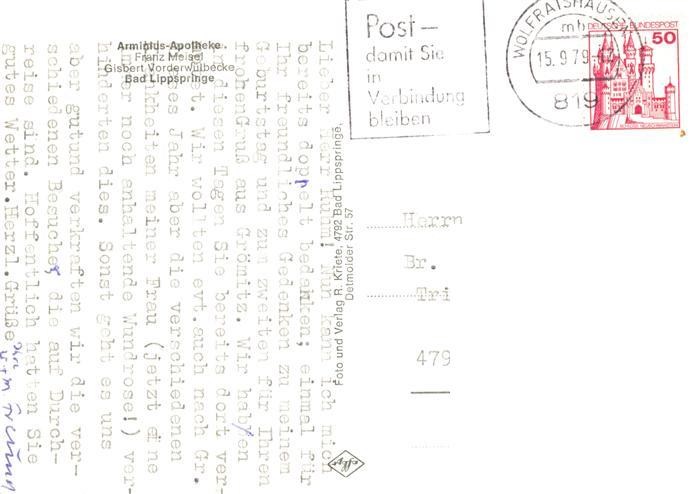 Arminius-Apotheke
Franz Meisel
Gisbert Vorderwülbecke
Bad Lippspringe
Post —
damit Sie
in
Verbindung
bleiben
WOLFRATSHAUSEN
mb
15.9.79
819
DEUTSCHE BUNDESPOST
50
Lieber Herr Nun kann ich mich
bereits doppelt bedanken; einmal für
Ihr freundliches Gedenken zu meinem
Geburtstag und zun zweiten für Ihren
frohen Gruß aus Grömitz. Wir haben
diesen Tagen Sie bereits dort ver-
Wir wollten evt.auch nach Gr.
Jahr aber die verschiedenen
meiner Frau (jetzt eine
immer noch anhaltende Wundrose!) ver-
hinderten dies. Sonst geht es uns
aber gutund verkraften wir die ver-
schiedenen Besucher, die auf Durch-
reise sind. Hoffentlich hatten Sie
gutes Wetter.Herzl.Grüße Ihre
Foto und Verlag R. Kriete, 4792 Bad Lippspringe,
Detmolder Str. 57
Herrn
Br.
Tri
479